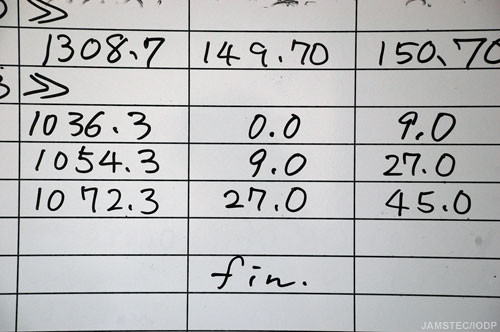 ≫
1308.7 149.70 150.70
≫
1036.3 0.0 9.0
1054.3 9.0 27.0
1072.3 27.0 45.0
fin.
JAMSTEC/IODP